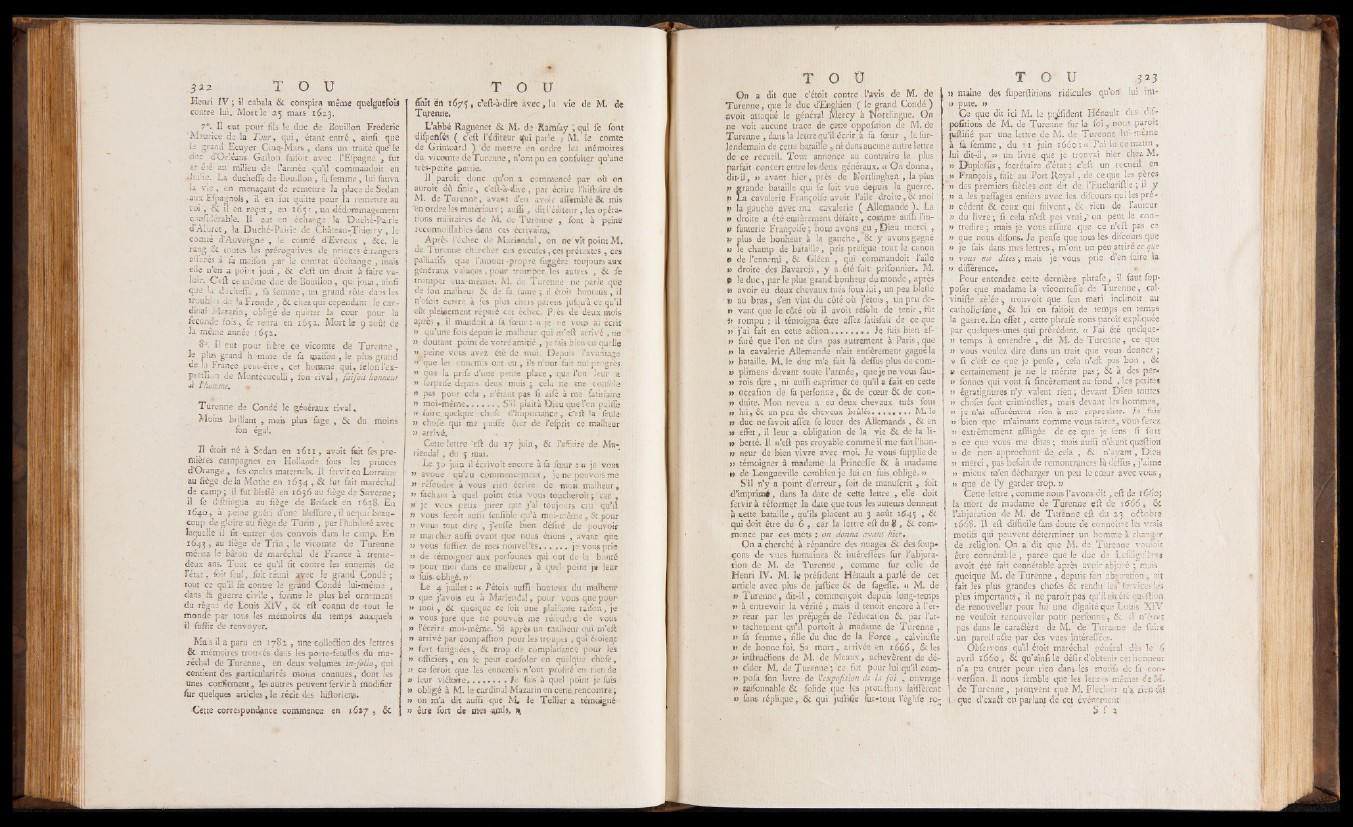 322 T O U
Henri IV ; il cabala & conspira même quelquefois
contre lui. Mort le 25 mars 1623.
7°. Il eut pour fils le duc de Bouillon Frederic
Maurice de la Tour, qui, étant entré, ainsi que
le grand Ecuyer Cinq-Mars, dans un traité que le
duc d'Orléans Gaston faisoit avec l'Espagne, fut
arrêté au milieu de l'armée qu'il commandoit en
Italie. La duchesse de Bouillon, sa femme, lui sauva
la vie, en menaçant de remettre la place de Sedan
aux Espagnols, il en fut quitte pour la remettre au
roi, & il en reçut, en 1651, un dédommagement
considérable. Il eut en échange la Duché-Pairie
d'Albret, la Duché-Pairie de Château-Thierry, le
comté d'Auvergne, le comté d'Evreux, &c. le
rang & toutes les prérogatives de princes étrangers
assurés à sa maison par le contrat d'échange, mais
elle n'en a point joui, & c'est un droit à faire va-
loir. C'est ce même duc de Bouillon, qui joua, ainsi
que la duchesse, sa femme, un grand rôle dans les
troubles de la Fronde, & chez qui cependant le car-
dinal Mazarin, obligé de quitter la cour pour la
seconde fois, se retira en 1652. Mort le 9 août de
la même année 1652.
8°. Il eut pour frère ce vicomte de Turenne,
le plus grand homme de sa maison, le plus grand
de la France peut-être, cet homme qui, selon l'ex-
pression de Montécuculli, son rival, faisoit honneur
à l'homme.
Turenne de Condé le généreux rival,
Moins brillant, mais plus sage, & du moins
son égal.
Il étoit né à Sedan en 1611, avoit fait ses pre-
mières campagnes en Hollande sous les princes
d'Orange, ses oncles maternels. Il servit en Lorraine
au siège de la Mothe en 1634, & fut fait maréchal
de camp ; il fut blessé en 1636 au siège de Saverne ;
il se distingua au siège de Brisack en 1638. En
1640, à peine guéri d'une blessure, il acquit beau-
coup de gloire au siège de Turin, par l'habileté avec
laquelle il fit entrer des convois dans le camp. En
1643, au siège de Trin, le vicomte de Turenne
mérita le bâton de maréchal de France à trente-
deux ans. Tout ce qu'il fit contre les ennemis de
l'état, soit seul, soit réuni avec le grand Condé ;
tout ce qu'il fit contre le grand Condé lui-même,
dans la guerre civile, forme le plus bel ornement
du règne de Louis XIV, & est connu de tout le
monde par tous les mémoires du temps auxquels
il suffit de renvoyer.
Mais il a paru en 1782, une collection des lettres
& mémoires trouvés dans les porte-feuilles du ma-
réchal de Turenne, en deux volumes in-folio, qui
contient des particularités moins connues, dont les
unes confirment, les autres peuvent servir à modifier
sur quelques articles, le récit des historiens.
Cette correspondance commence en 1627, &
T O U
finit en 1675, c'est-à-dire avec, la vie de M. de
Turenne.
L'abbé Raguenet & M. de Ramsay ; qui se sont
dispensés ( c'est l'éditeur qui parle, M. le comte
de Grimoard ) de mettre en ordre les mémoires
du vicomte de Turenne, n'ont pu en consulter qu'une
très-petite partie.
Il paroît donc qu'on a commencé par où on
auroit dû finir, c'est-à-dire, par écrire l'histoire de
M. de Turenne, avant d'en avoir assemblé & mis
en ordre les matériaux ; aussi, dit l'éditeur, les opéra-
tions militaires de M. de Turenne, sont à peine
reconnoissables dans ces écrivains.
Après l'échec de Mariendal, on ne vit point M.
de Turenne chercher ces excuses, ces prétextes, ces
palliatifs que l'amour-propre suggère toujours aux
généraux vaincus, pour tromper les autres, & se
tromper eux-mêmes. M. de Turenne ne parle que
de son malheur & de sa faute ; il étoit honteux, il
n'osoit écrire à ses plus chers parens jusqu'à ce qu'il
eût pleinement réparé cet échec. Près de deux mois
après, il mandoit à sa sœur : « je ne vous ai écrit
» qu'une fois depuis le malheur qui m'est arrivé, ne
» doutant point de votre amitié, je sais bien en quelle
» peine vous avez été de moi. Depuis l'avantage
» que les ennemis ont eu, ils n'ont fait nul progrès
» que la prise d'une petite place, que l'on leur a
» surprise depuis deux mois ; cela ne me console
» pas pour cela, n'étant pas si aisé à me satisfaire
» moi-même...... S'il plait à Dieu que l'on puisse
» faire quelque chose d'importance, c'est la seule
» chose qui me puisse ôter de l'esprit ce malheur
» arrivé.
Cette lettre est du 17 juin, & l'affaire de Ma-
riendal, du 5 mai.
Le 30 juin il écrivoit encore à sa sœur : « je vous
» avoue qu'au commencement, je ne pouvois me
» résoudre à vous rien écrire de mon malheur,
» sachant à quel point cela vous toucheroit ; car,
» je vous peux jurer que j'ai toujours cru qu'il
» vous seroit aussi sensible qu'à moi-même, & pour
» vous tout dire, j'eusse bien désiré de pouvoir
» marcher aussi avant que nous étions, avant que
» vous sussiez de mes nouvelles...... je vous prie
» de témoigner aux personnes qui ont de la bonté
» pour moi dans ce malheur, à quel point je leur
» suis obligé. »
Le 4 juillet : « J'étois aussi honteux du malheur
» que j'avois eu à Mariendal, pour vous que pour
» moi, & quoique ce soit une plaisante raison, je
» vous jure que ne pouvois me résoudre de vous
» l'écrire moi-même. Si après un malheur qui m'est
» arrivé par compassion pour les troupes, qui étoient
» fort fatiguées, & trop de complaisance pour les
» officiers, on se peut consoler en quelque chose,
» ce seroit que les ennemis n'ont profité en rien de
» leur victoire........ Je suis à quel point je suis
» obligé à M. le cardinal Mazarin en cette rencontre ;
» on m'a dit aussi que M. le Tellier a témoigné
» être fort de mes amis. »
T O U
On a dit que c'étoit contre l'avis de M. de
Turenne, que le duc d'Enghien ( le grand Condé )
avoit attaqué le général Mercy à Nortelingue. On
ne voit aucune trace de cette opposition de M. de
Turenne, dans la lettre qu'il écrit à sa sœur, le sur-
lendemain de cette bataille, ni dans aucune autre lettre
de ce recueil. Tout annonce au contraire le plus
parfait concert entre les deux généraux. « On donna,
dit-il, » avant hier, près de Nortlinghen, la plus
» grande bataille qui se soit vue depuis la guerre.
» La cavalerie Françoise avoit l'aile droite, & moi
» la gauche avec ma cavalerie ( Allemande ). La
» droite a été entièrement défaite, comme aussi l'in-
» fanterie Françoise ; nous avons eu, Dieu merci,
» plus de bonheur à la gauche, & y avons gagné
» le champ de bataille, pris presque tout le canon
» de l'ennemi, & Gléen, qui commandoit l'aile
» droite des Bavarois, y a été fait prisonnier. M.
» le duc, par le plus grand bonheur du monde, après
» avoir eu deux chevaux tués sous lui, un peu blessé
» au bras, s'en vint du côté où j'étois, un peu de-
» vant que le côté où il avoit résolu de tenir, fût
» rompu : il témoigna être assez satisfait de ce que
» j'ai fait en cette action......... Je suis bien as-
» suré que l'on ne dira pas autrement à Paris, que
» la cavalerie Allemande n'ait entièrement gagné la
» bataille. M. le duc m'a fait là dessus plus de com-
» plimens devant toute l'armée, que je ne vous sau-
» rois dire, ni aussi exprimer ce qu'il a fait en cette
» occasion de sa personne, & de cœur & de con-
» duite. Mon neveu a eu deux chevaux tués sous
» lui, & un peu de cheveux brûlés........ M. le
» duc ne savoit assez se louer des Allemands, & en
» effet, il leur a obligation de la vie & de la li-
» berté. Il n'est pas croyable comme il me fait l'hon-
» neur de bien vivre avec moi. Je vous supplie de
» témoigner à madame la Princesse & à madame
» de Longueville combien je lui en suis obligé. »
S'il n'y a point d'erreur, soit de manuscrit, soit
d'imprimé, dans la date de cette lettre, elle doit
servir à réformer la date que tous les auteurs donnent
à cette bataille, qu'ils placent au 3 août 1645, &
qui doit être du 6, car la lettre est du 8, & com-
mence par ces mots : on donna avant hier.
On a cherché à répandre des nuages & des soup-
çons de vues humaines & intéressées sur l'abjura-
tion de M. de Turenne, comme sur celle de
Henri IV. M. le président Hénault a parlé de cet
article avec plus de justice & de sagesse. « M. de
» Turenne, dit-il, commençoit depuis long-temps
» à entrevoir la vérité, mais il tenoit encore à l'er-
» reur par les préjugés de l'éducation & par l'at-
» tachement qu'il portoit à madame de Turenne,
» sa femme, fille du duc de la Force, calviniste
» de bonne foi. Sa mort, arrivée en 1666, & les
» instructions de M. de Meaux, achevèrent de dé-
» cider M. de Turenne ; ce fut pour lui qu'il com-
» posa son livre de l'exposition de la foi, ouvrage
» raisonnable & solide que les protestans laissèrent
» sans réplique, & qui justifie sur-tout l'église ro-
T O U 323
» maine des superstitions ridicules qu'on lui im-
» pute. »
Ce que dit ici M. le président Hénault des dis-
positions de M. de Turenne sur la foi, nous paroît
justifié par une lettre de M. de Turenne lui-même
à sa femme, du 11 juin 1660 : « J'ai lu ce matin,
lui dit-il, » un livre que je trouvai hier chez M.
» Duplessis, secrétaire d'état ; c'est un recueil en
» François, fait au Port Royal, de ce que les pères
» des premiers siècles ont dit de l'Eucharistie ; il y
» a les passages entiers avec les discours qui les pré-
» cèdent & ceux qui suivent, & rien de l'auteur
» du livre ; si cela n'est pas vrai, on peut le con-
» tredire ; mais je vous assure que ce n'est pas ce
» que nous disons. Je pense que tous les discours que
» je fais dans mes lettres, m'ont un peu attiré ce que
» vous me dites ; mais je vous prie d'en faire la
» différence.
Pour entendre cette dernière phrase, il faut sup-
poser que madame la vicomtesse de Turenne, cal-
viniste zélée, trouvoit que son mari inclinoit au
catholicisme, & lui en faisoit de temps en temps
la guerre. En effet, cette phrase nous paroît expliquée
par quelques-unes qui précèdent. « J'ai été quelque-
» temps à entendre, dit M. de Turenne, ce que
» vous voulez dire dans un trait que vous donnez ;
» si c'est ce que je pense, cela n'est pas bon, &
» certainement je ne le mérite pas ; & à des per-
» sonnes qui vont si sincèrement au fond, les petites
» égratignures n'y valent rien ; devant Dieu toutes
» choses sont criminelles, mais devant les hommes,
» je n'ai assurément rien à me reprocher. Je suis
» bien que m'aimant comme vous faites, vous serez
» extrêmement affligée de ce que je sens si fort
» ce que vous me dites ; mais aussi n'étant question
» de rien approchant de cela, & n'ayant, Dieu
» merci, pas besoin de remontrances là dessus, j'aime
» mieux m'en décharger un peu le cœur avec vous,
» que de l'y garder trop. »
Cette lettre, comme nous l'avons dit, est de 1660 ;
la mort de madame de Turenne est de 1666, &
l'abjuration de M. de Turenne est du 23 octobre
1668. Il est difficile sans doute de connoître les vrais
motifs qui peuvent déterminer un homme à changer
de religion. On a dit que M. de Turenne vouloit
être connétable, parce que le duc de Lesdiguières
avoit été fait connétable après avoir abjuré ; mais
quoique M. de Turenne, depuis son abjuration, ait
fait les plus grandes choses & rendu les services les
plus importants, il ne paroît pas qu'il ait été question
de renouveller pour lui une dignité que Louis XIV
ne vouloit renouveller pour personne, & il n'étoit
pas dans le caractère de M. de Turenne de faire
un pareil acte par des vues intéressées.
Observons qu'il étoit maréchal général dès le 6
avril 1660, & qu'ainsi le désir d'obtenir cet honneur
n'a pu entrer pour rien dans les motifs de sa con-
version. Il nous semble que les lettres mêmes de M.
de Turenne, prouvent que M. Fléchier n'a rien dit
que d'exact en parlant de cet évènement
S f 2